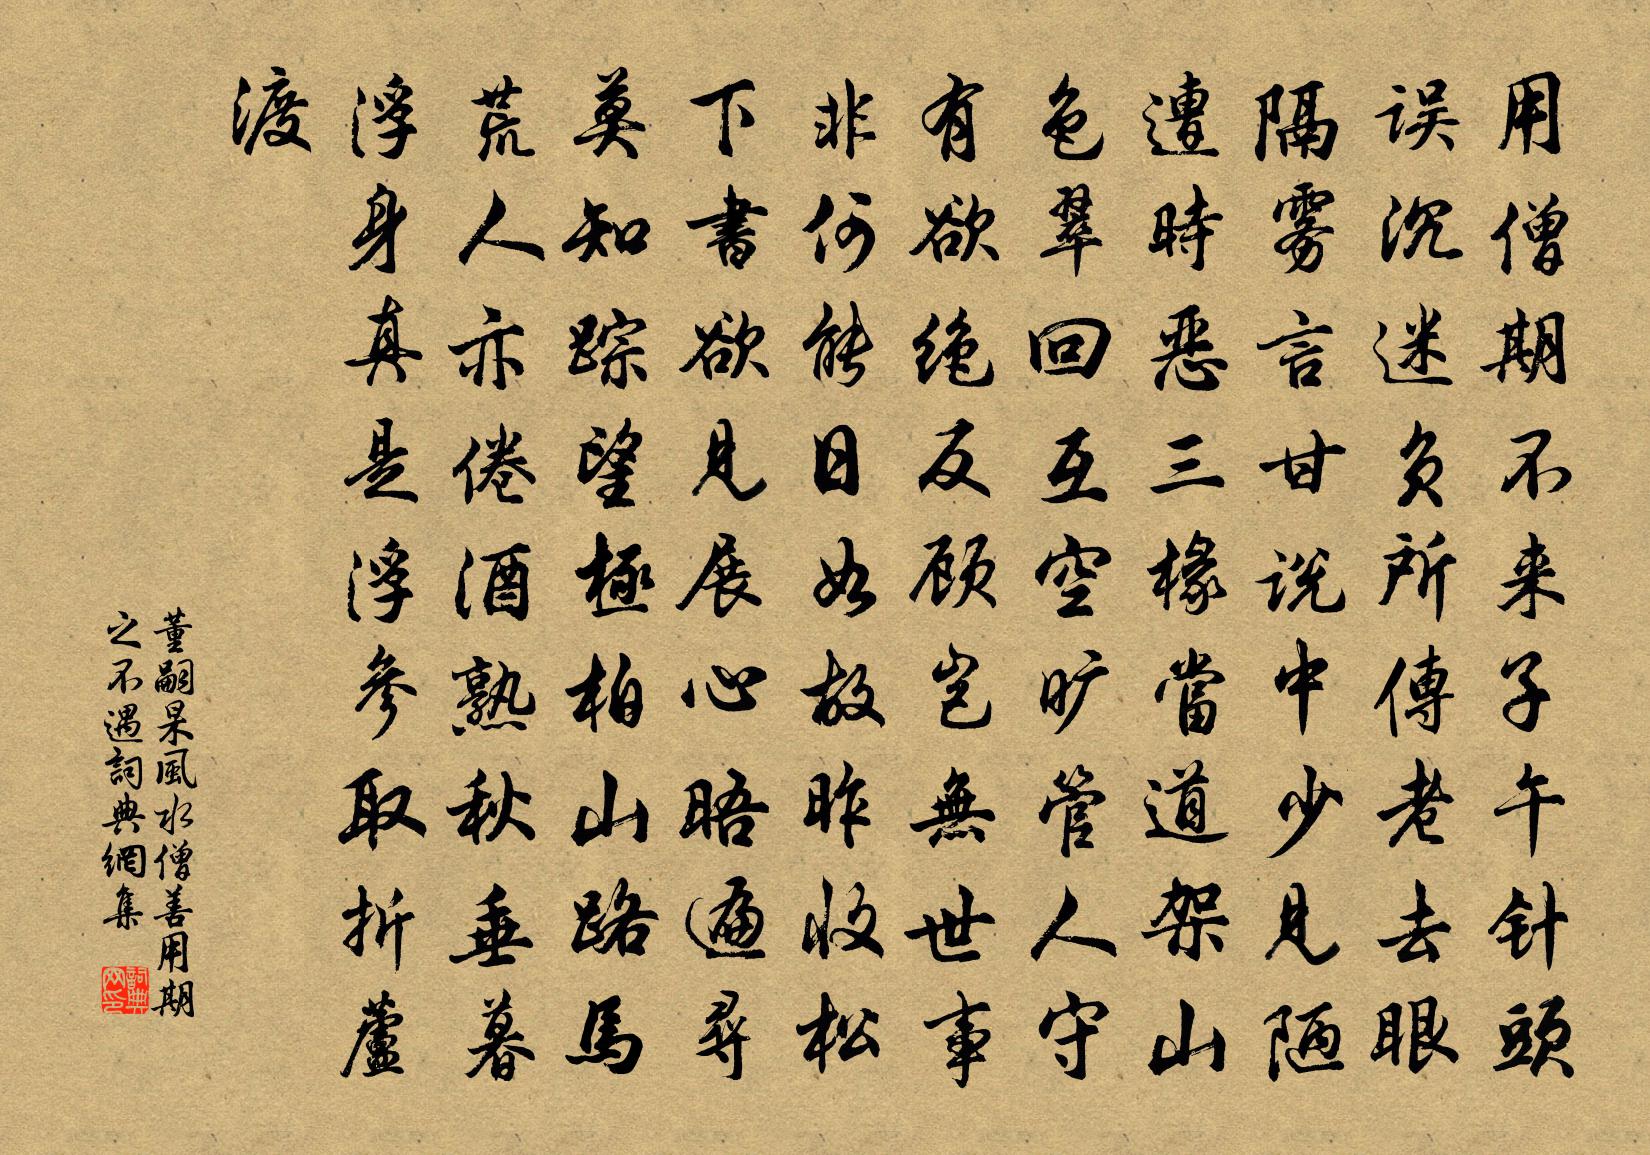 用僧期不来子午针頭
误沉迷负所傳老去眼
隔雾言甘说中少見陋
遭時恶三椽當道架山
色翠回互空旷管人守
有欲绝反顾岂無世事
非何能日如故昨收松
下書欲見展心晤遍尋
莫知踪望極柏山路馬
荒人亦倦酒熟秋垂暮
浮身真是浮參取折蘆
渡
董嗣杲風水僧善用期
之不遇詞典網集
詞典网印